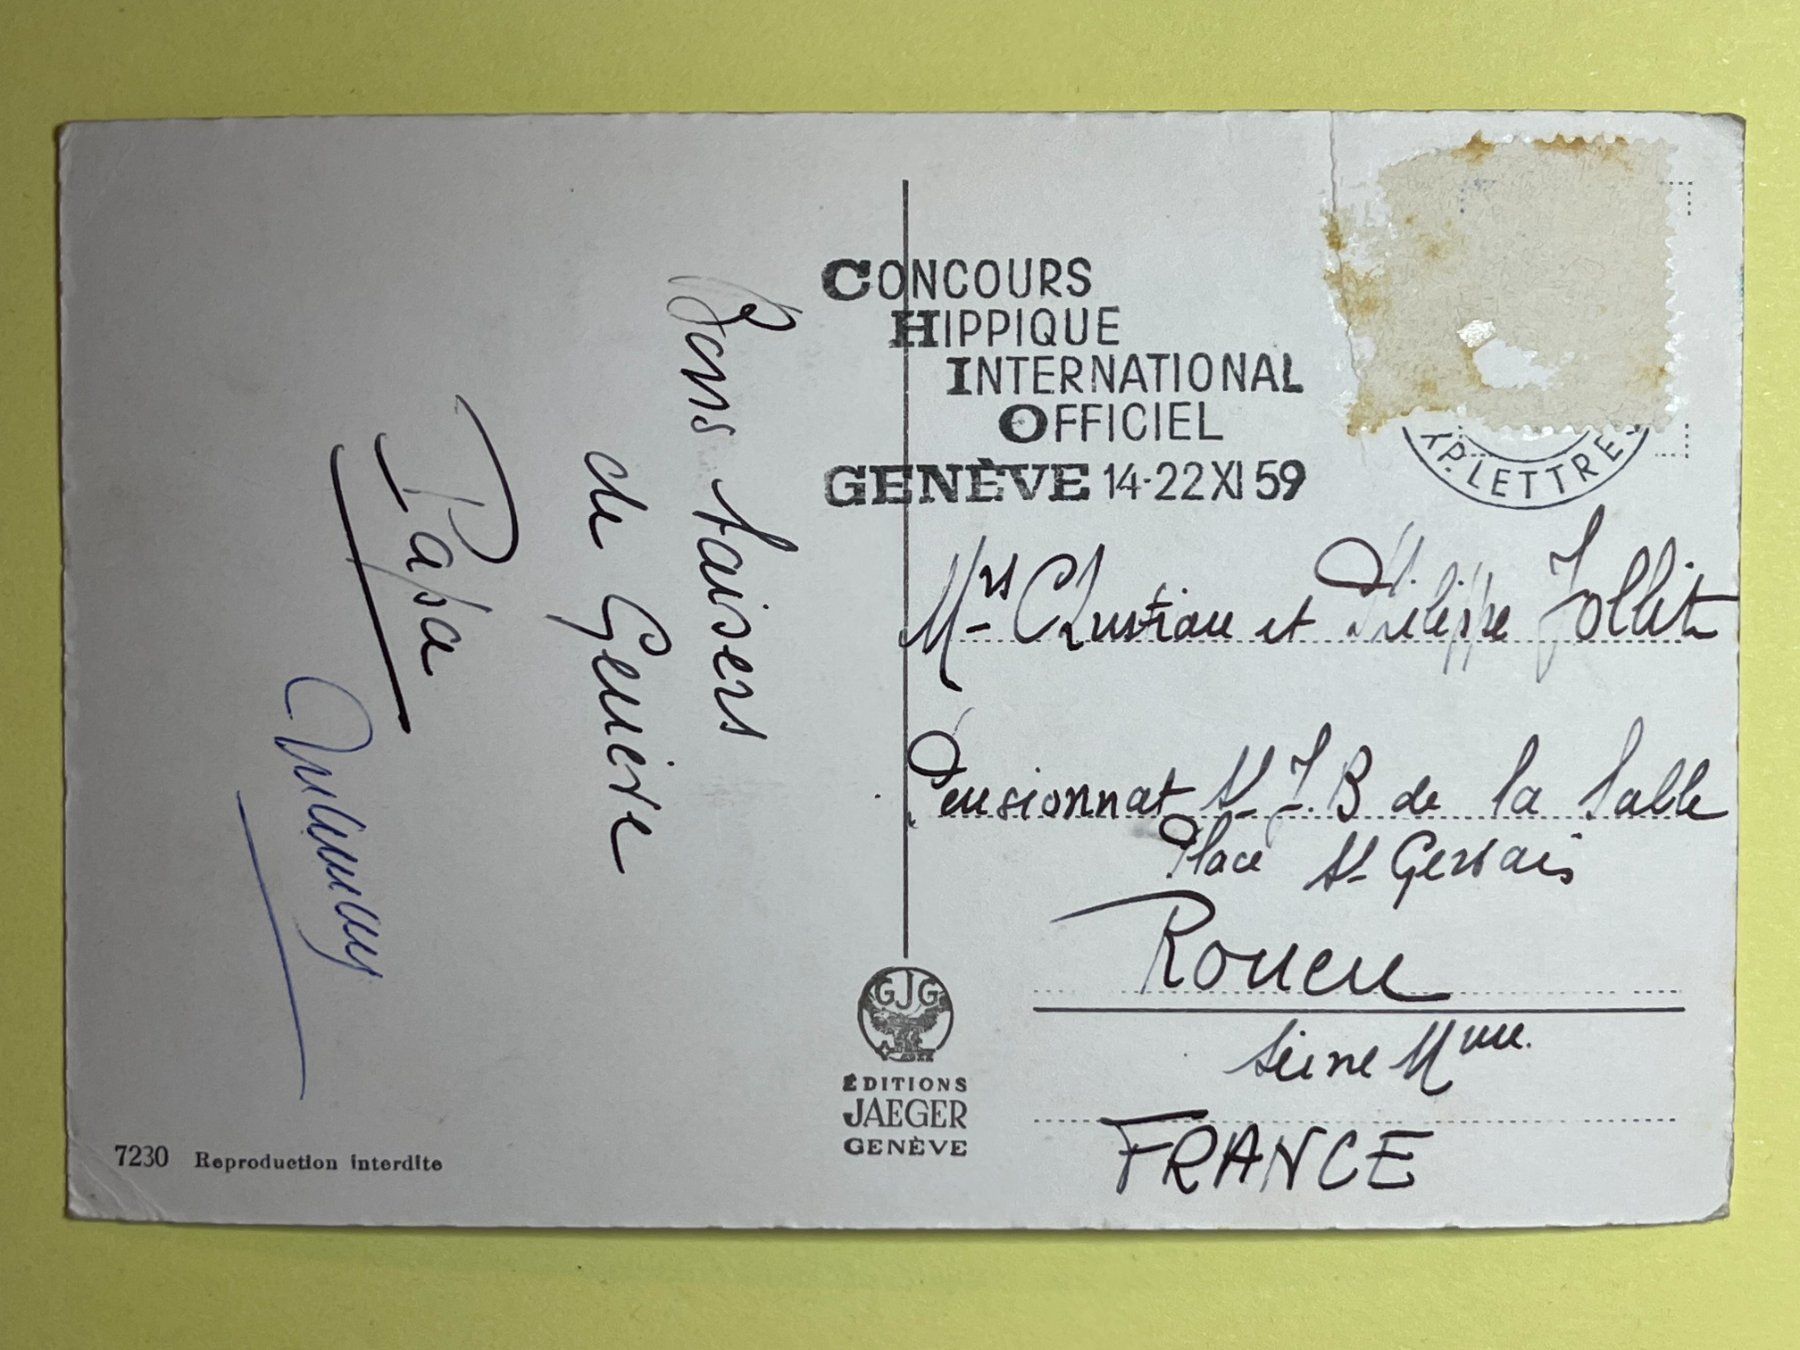 Bons baisers
de Genève
Papa
CONCOURS
HIPPIQUE
INTERNATIONAL
OFFICIEL
GENÈVE 14-22 XI 59
XP. LETTRES
Mrs Christian et Philippe Jollit
Pensionnat St J. B de la Salle
Place St Gervais
Rouen
Seine Mme.
FRANCE
GJG
ÉDITIONS
JAEGER
GENÈVE
7230 Reproduction interdite